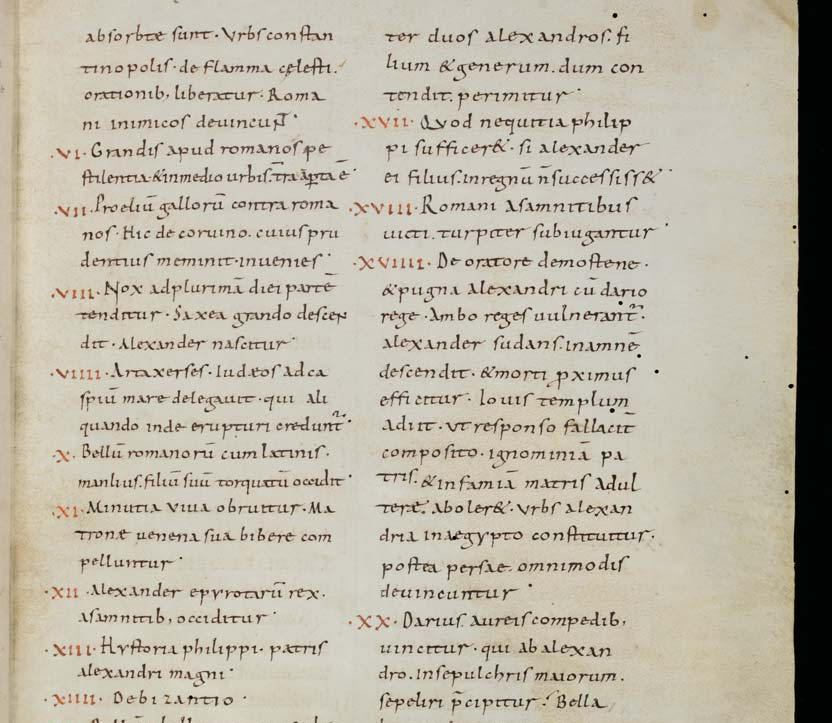 absorbtę sunt · Urbs constan
tinopolis · de flamma cęlesti.
orationib; liberatur · Roma
ni inimicos devincun̄t ·
·VI· Grandis apud romanos pe
stilentia · & in medio urbis
·VII· Proeliū gallorū contra roma
nos · Hic de corvino. cuius pru
dentius meminit · invenies ·
·VIII· Nox ad plurimā diei partē
tenditur · Saxea grando descen
dit · Alexander nascitur ·
·VIIII· Artaxerses · Iudæos ad ca
spiū mare delegavit · qui ali
quando inde erupturi credunt̄ ·
·X· Bellū romanorū cum latinis ·
manlius · filiū suū torquatū occidit ·
·XI· Minutia viva obruitur · Ma
tronæ venena sua bibere com
pelluntur ·
·XII· Alexander epyrotarū rex ·
a samnitib; occiditur ·
·XIII· Hystoria philippi · patris
alexandri magni ·
·XIIII· De bizantio ·
ter duos alexandros. fi
lium & generum. dum con
tendit. perimitur ·
·XVII· Quod nequitia philip
pi suffícer& · si alexander
ei filius. in regnū n̄ successiss& ·
·XVIII· Romani a samnitibus
victi. turpiter subiugantur ·
·XVIIII· De oratore demostene ·
& pugna alexandri cū dario
rege · Ambo reges vulnerant̄ ·
alexander sudans. in amnē
descendit · & morti ꝓximus
efficitur · Iovis templum
adiit · ut responso fallacit̄
composito · ignominiā pa
tris · & infamiā matris adul
teræ · aboler& · Urbs alexan
dria in aegypto constituitur ·
postea persae · omnimodis
devincuntur
·XX· Darius aureis compedib;
vincitur · qui ab alexan
dro. in sepulchris maiorum ·
sepeliri p̄cipitur · Bella